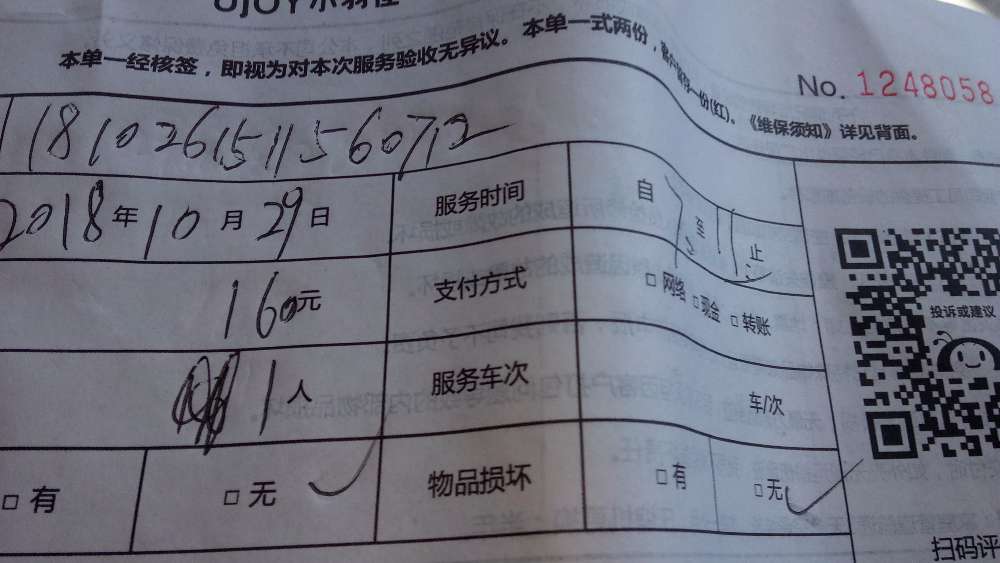 UJOY小羽佳
本单一经核签，即视为对本次服务验收无异议。本单一式两份，客户留存一份(红)。《维保须知》详见背面。
No. 1248058
2018年10月29日 服务时间 自 至 11 止
160元 支付方式 □ 网络 □ 现金 □ 转账
1人 服务车次 车/次
□ 有 □ 无 ✓ 物品损坏 □ 有 □ 无 ✓
投诉或建议
扫码评